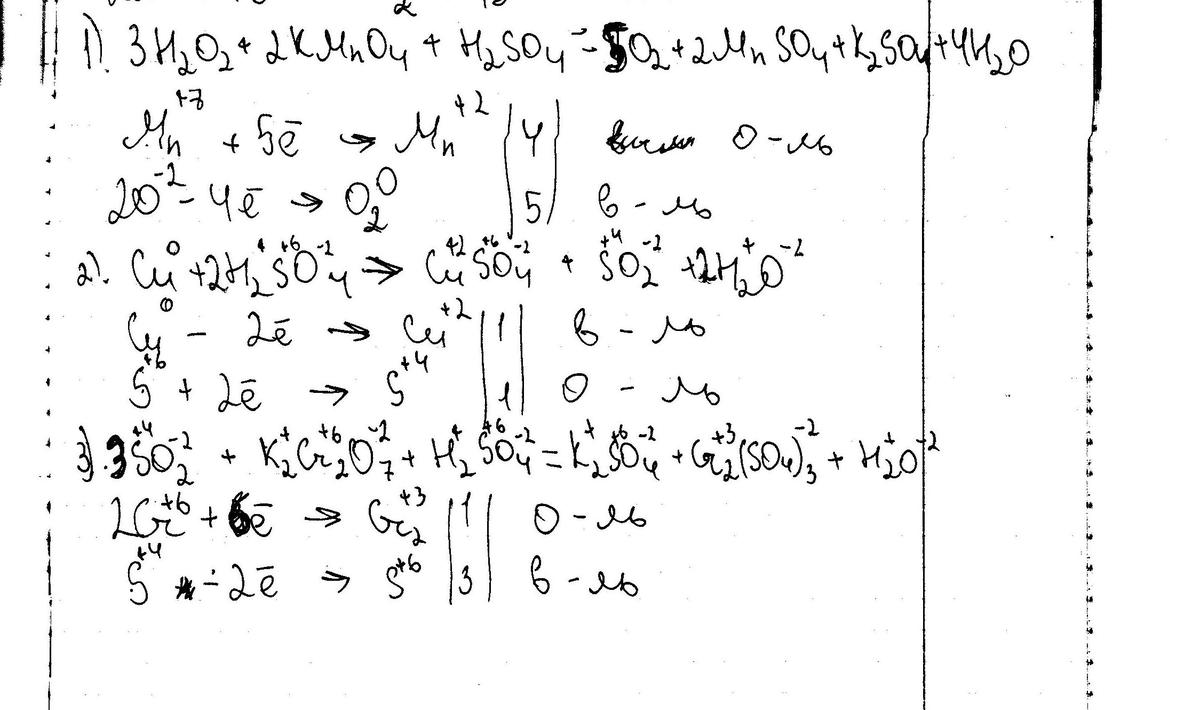 1). 3H₂O₂ + 2KMnO₄ + H₂SO₄ = 5O₂ + 2MnSO₄ + K₂SO₄ + 4H₂O
Mn⁺⁷ + 5ē → Mn⁺² | 4 | О-ль
2O⁻² - 4ē → O₂⁰ | 5 | в-ль
2). Cu⁰ + 2H₂⁺S⁺⁶O₄⁻² → Cu⁺²S⁺⁶O₄⁻² + S⁺⁴O₂⁻² + 2H₂⁺O⁻²
Cu⁰ - 2ē → Cu⁺² | 1 | в-ль
S⁺⁶ + 2ē → S⁺⁴ | 1 | О-ль
3). 3S⁺⁴O₂⁻² + K₂⁺Cr₂⁺⁶O₇⁻² + H₂⁺S⁺⁶O₄⁻² = K₂⁺S⁺⁶O₄⁻² + Cr₂⁺³(SO₄)₃⁻² + H₂⁺O⁻²
2Cr⁺⁶ + 6ē → Cr₂⁺³ | 1 | О-ль
S⁺⁴ - 2ē → S⁺⁶ | 3 | в-ль